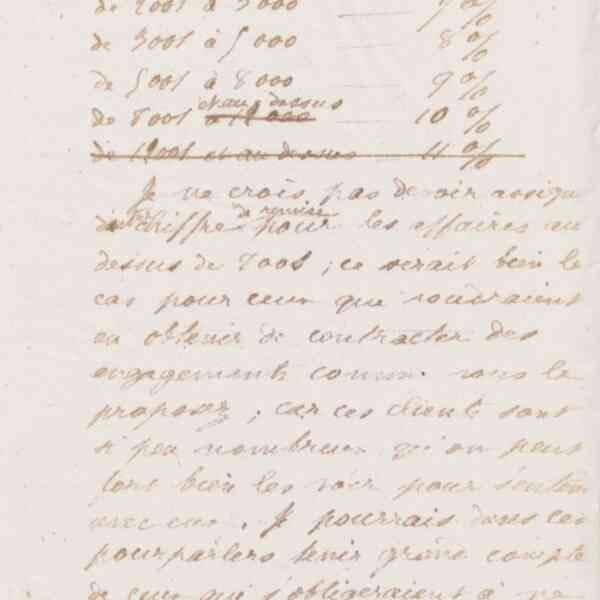 de 2001 à 3000 — 7 %
de 3001 à 5000 — 8 %
de 5001 à 8000 — 9 %
et au dessus
de 8001 à 12000 — 10 %
de 12001 et au dessus — 11 %
Je ne crois pas devoir assigner
de remise
chiffre pour les affaires au
dessus de ; ce serait bien le
cas pour ceux que voudraient
en obtenir de contracter des
engagements comme vous le
proposez ; car ces clients sont
si peu nombreux qu'on peut
fort bien les voir pour s'entendre
avec eux. Je pourrais dans ces
pourparlers tenir grand compte
de ceux qui s'obligeraient à ne